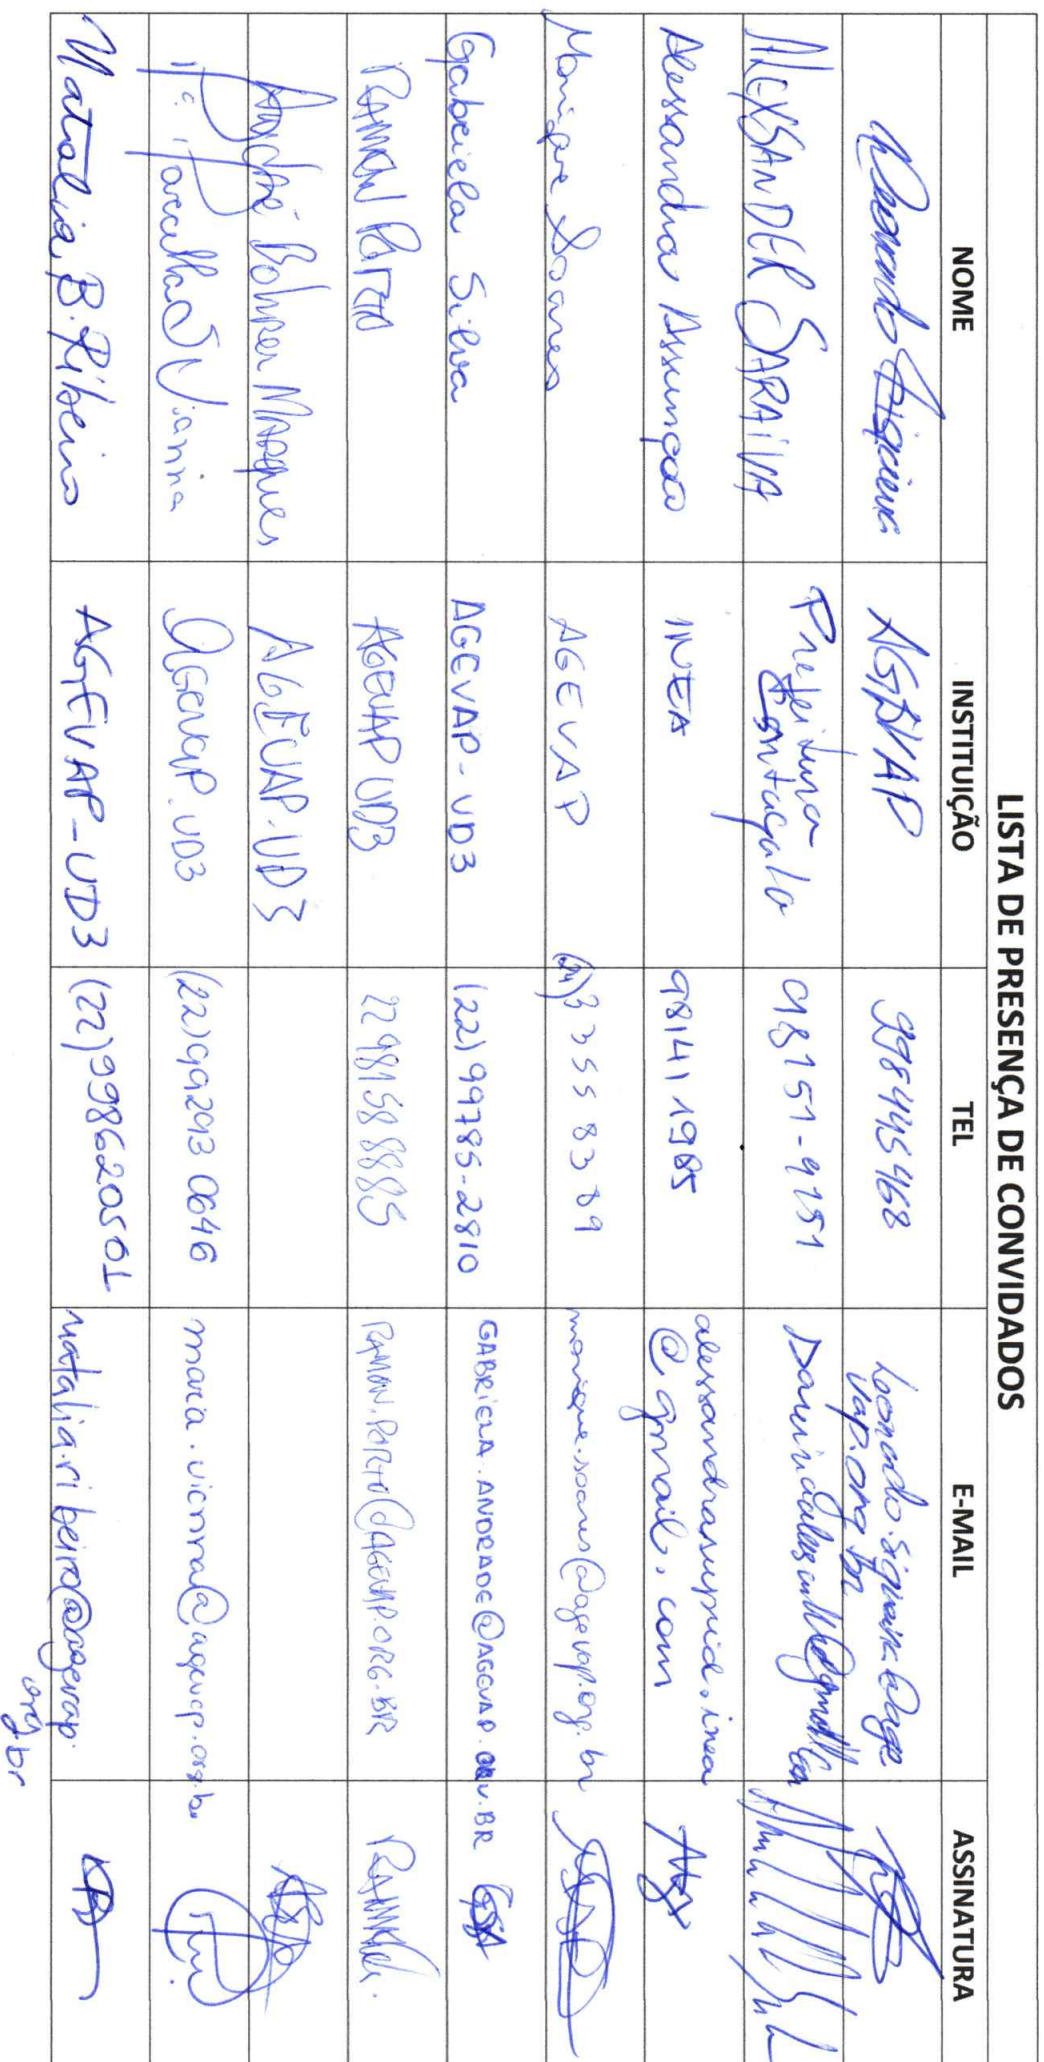 LISTA DE PRESENÇA DE CONVIDADOS
NOME INSTITUIÇÃO TEL E-MAIL ASSINATURA
Leonardo Siqueira AGEVAP 998445468 leonardo.siqueira@age
vap.org.br
ALEXSANDER SARAIVA Prefeitura
Cantagalo 98151-9151
Alessandra Assunção INEA 981411985 alessandrasupid.inea
@gmail.com
Monique Soares AGEVAP (24)33558389 monique.soares@agevap.org.br
Gabriela Silva AGEVAP-UD3 (22)99785-2810 GABRIELA.ANDRADE@AGEVAP.BR
RAMON PORTO AGEVAP UD3 22981588885 RAMON.PORTO@AGEVAP.ORG.BR RAMON
André Bohrer Marques AGEVAP-UD3
Mª Marcella S Vianna AGEVAP.UD3 (22)992930646 maria.vianna@agevap.org.br
Natália B. Ribeiro AGEVAP-UD3 (22)998620501 natalia.ribeiro@agevap.
org.br